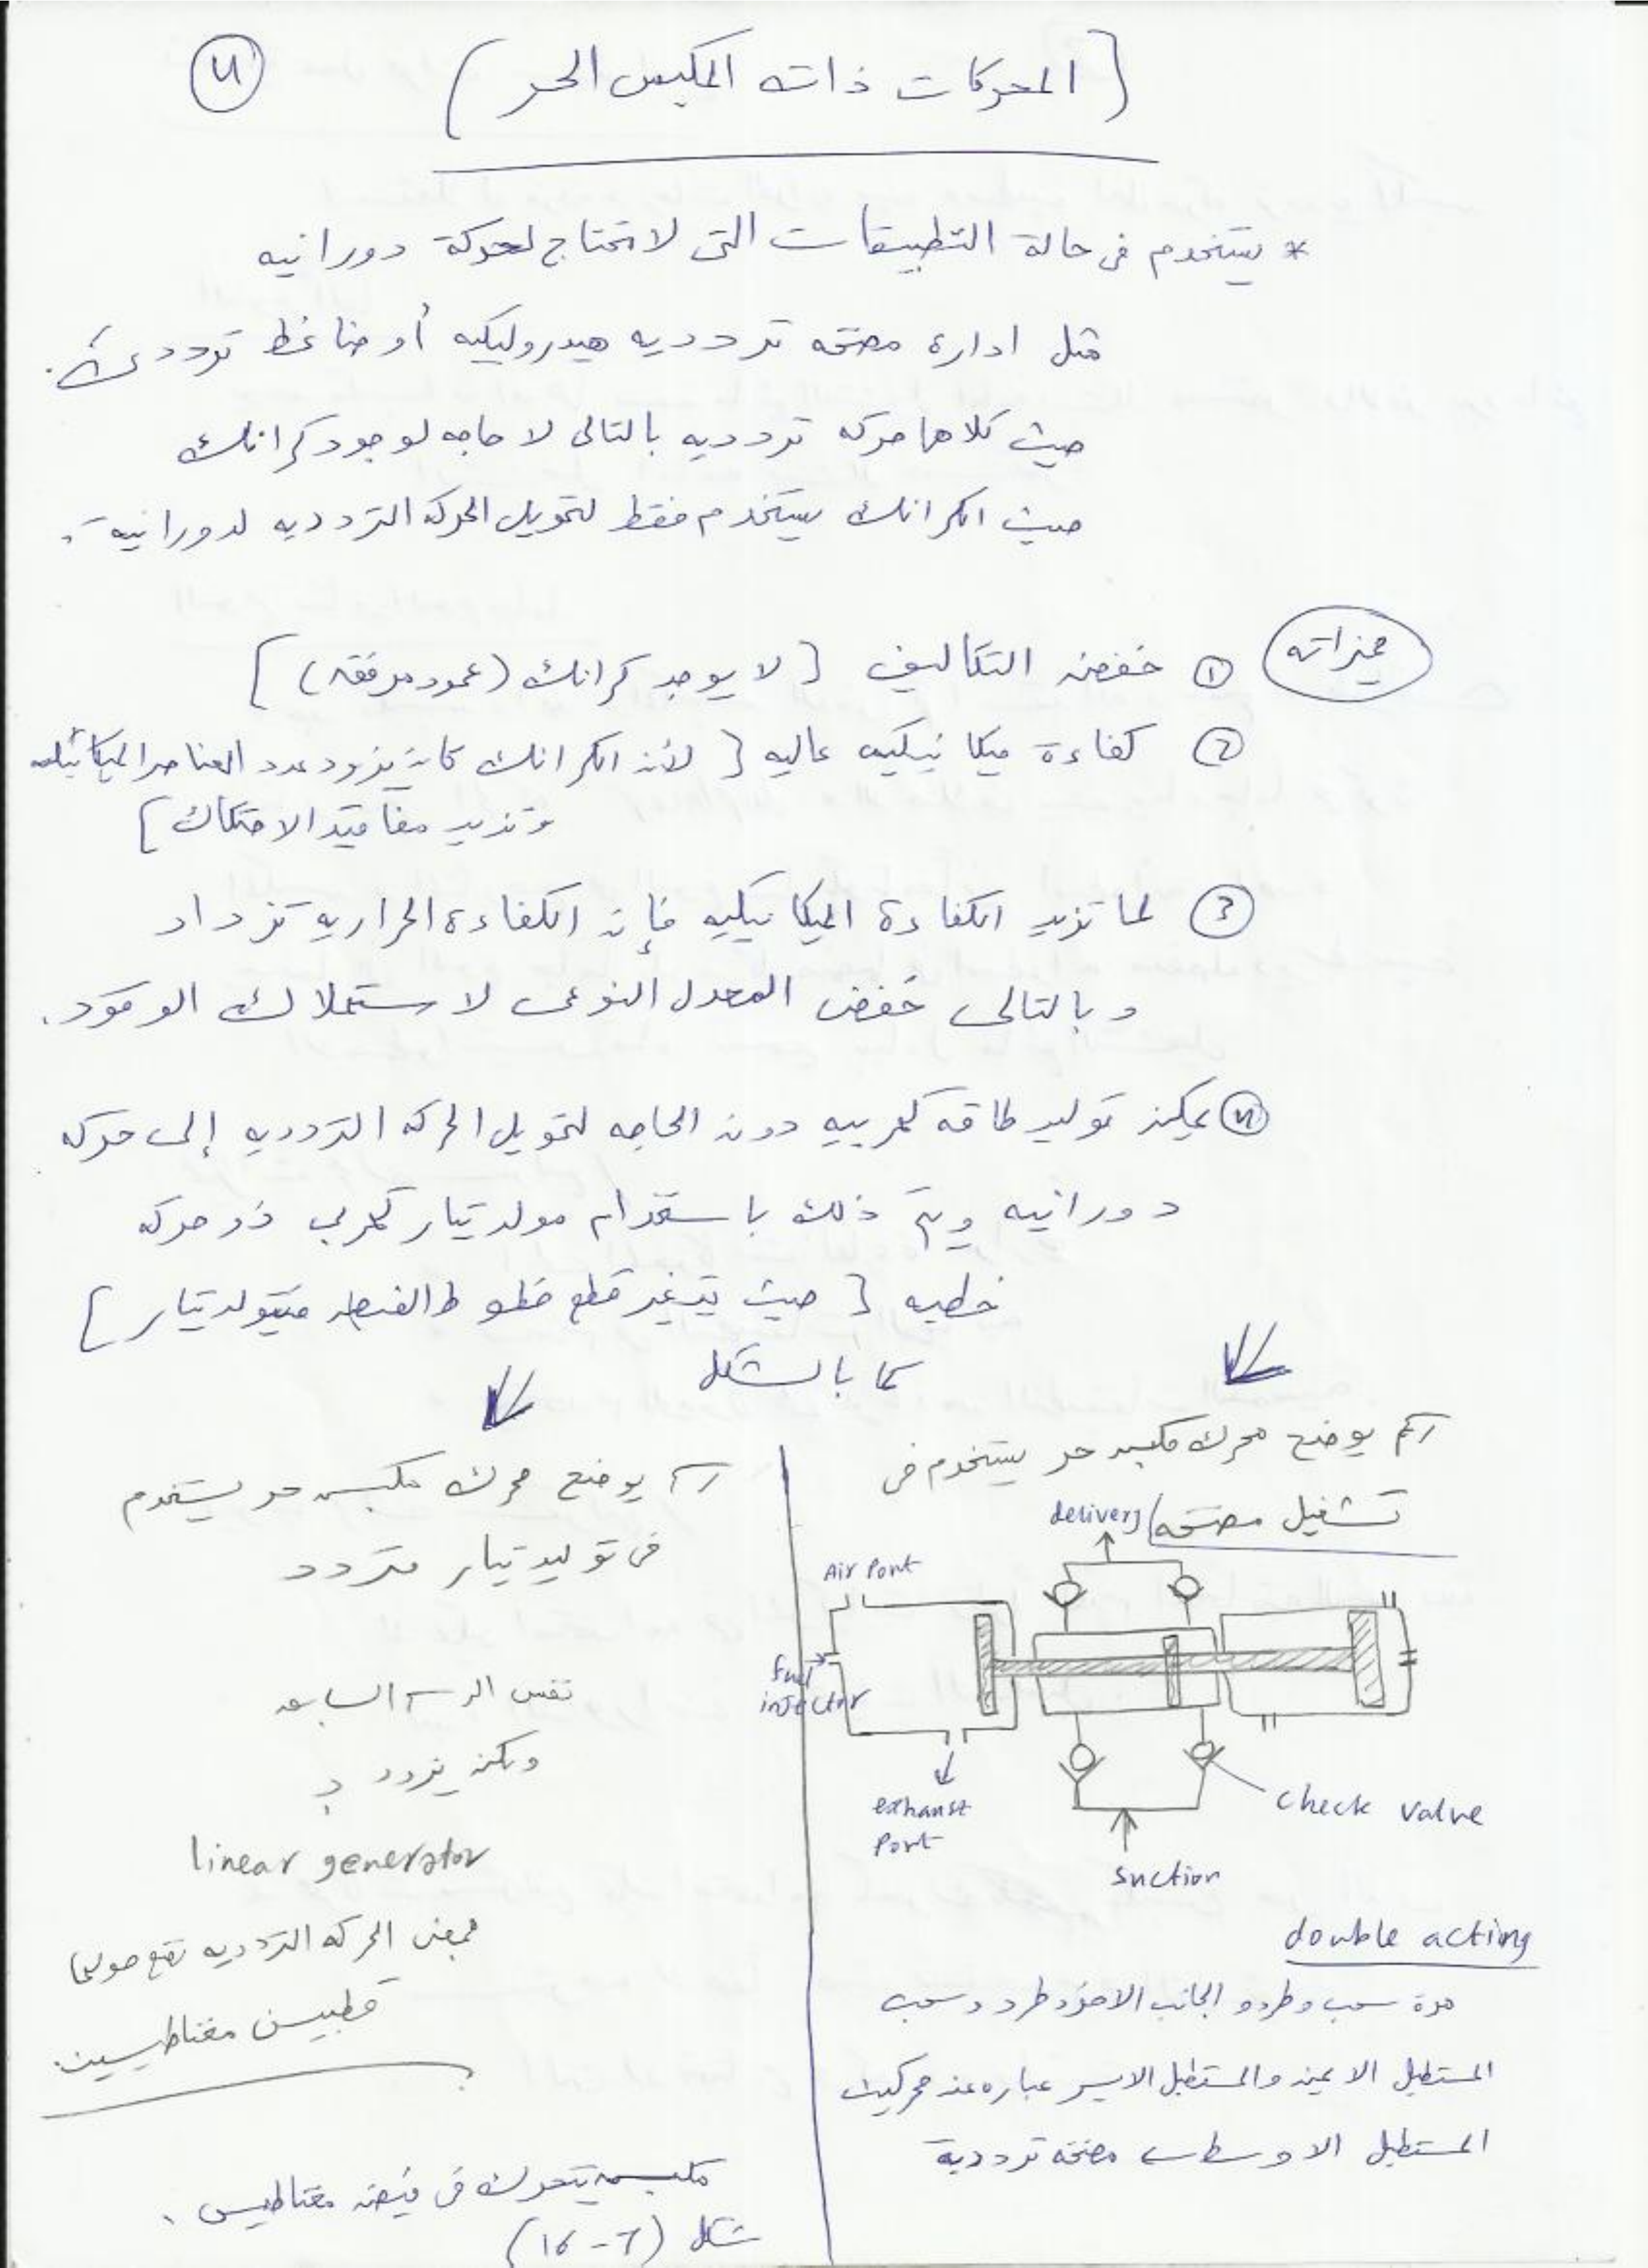 (المحركات ذات المكبس الحر)
٤
* يستخدم فى حالة التطبيقات التى لا تحتاج لحركة دورانيه
مثل ادارة مضخه تردديه هيدروليكيه أو ضاغط ترددى
حيث كلاهما حركه تردديه بالتالى لا حاجه لوجود كرانك
حيث الكرانك يستخدم فقط لتحويل الحركه التردديه لدورانية.
مميزاته
① خفض التكاليف [لا يوجد كرانك (عمود مرفقى)]
② كفاءة ميكانيكيه عاليه [لأن الكرانك كان يزود عدد العناصر الميكانيكيه
وتزيد مفاقيد الاحتكاك]
③ لما تزيد الكفاءة الميكانيكيه فإن الكفاءة الحراريه تزداد
وبالتالى خفض المعدل النوعى لاستهلاك الوقود.
④ يمكن توليد طاقه كهربيه دون الحاجه لتحويل الحركه التردديه إلى حركه
دورانيه ويتم ذلك باستخدام مولد تيار كهربى ذو حركه
خطيه [حيث يتغير قطع خطوط الفيض فيتولد تيار]
كما بالشكل
رسم يوضح محرك مكبس حر يستخدم فى
تشغيل مضخه
delivery
Air Port
fuel
injector
exhaust
Port
check valve
suction
double acting
مرة سحب وطرد و الجانب الاخر طرد وسحب
المستطيل الايمن والمستطيل الايسر عباره عن محركين
المستطيل الاوسط مضخه ترددية
رسم يوضح محرك مكبس حر يستخدم
فى توليد تيار متردد
نفس الرسم السابق
ولكن يزود بـ
linear generator
بمعنى الحركه التردديه تقع حولها
قطبين مغناطيسين
مكبس يتحرك فى فيض مغناطيسى.
شكل (7-16)